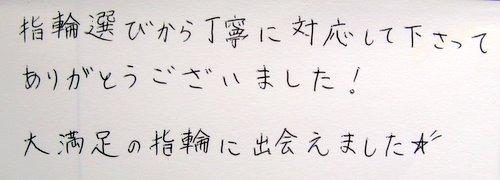 指輪選びから丁寧に対応して下さって
ありがとうございました!
大満足の指輪に出会えました☆